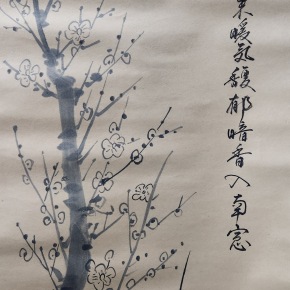 来暖気馥郁暗香入南窓